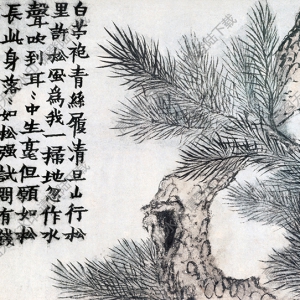 白苧袍青絲履清旦山行松
里許松風為我一掃地忽作水
聲吹到耳〻中生毫但願如松
長此身落〻如松強試問有錢